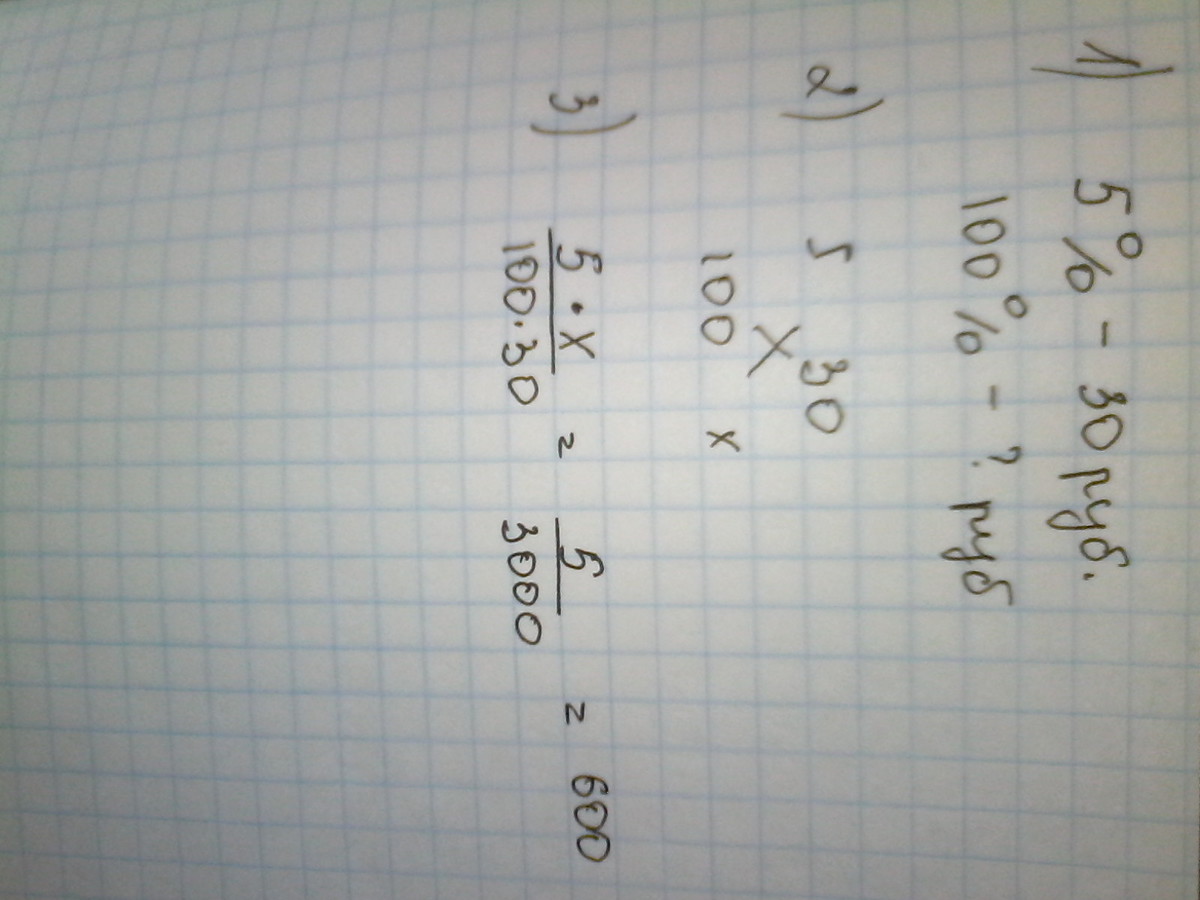 1) 5% - 30 руб.
100% - ? руб
2) 5 30
X
100 x
3) 5 · x / 100 · 30 = 5 / 3000 = 600